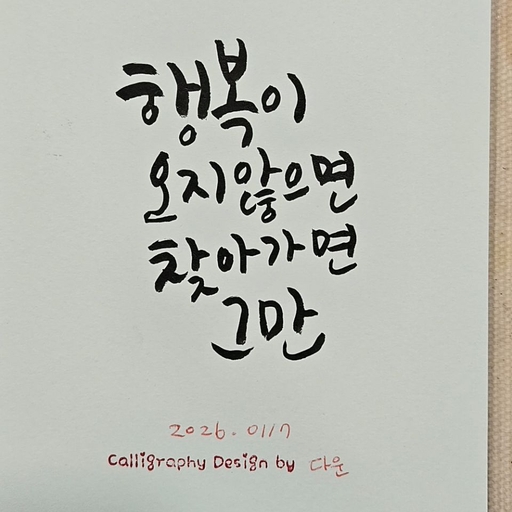 행복이
오지않으면
찾아가면
그만
2026.0117
Calligraphy Design by 다운